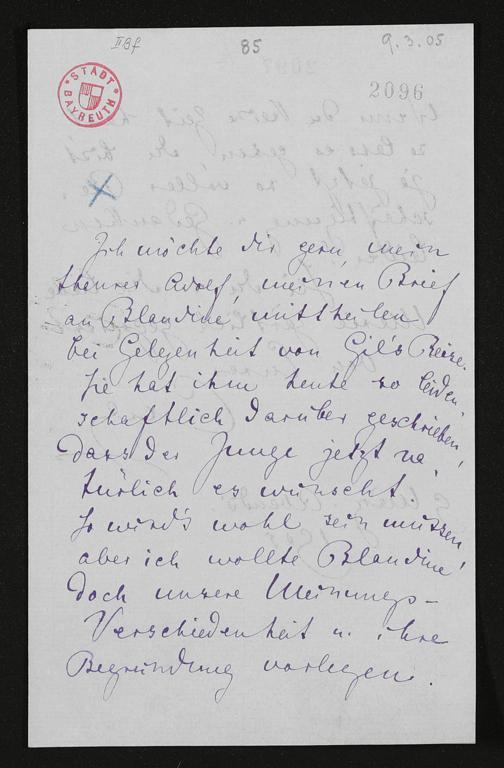 II Bf
85
9.3.05
STADT BAYREUTH
2096
Ich möchte dir gern, mein
theurer Adolf, meinen Brief
an Blandine, mittheilen
bei Gelegenheit von Gil's Reise.
Sie hat ihm heute so leiden-
schaftlich darüber geschrieben,
dass der Junge jetzt na-
türlich es wünscht.
So wird's wohl sein müssen,
aber ich wollte Blandine
doch unsere Meinungs-
Verschiedenheit u. ihre
Begründung vorlegen.